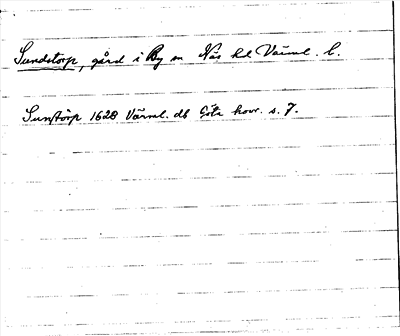 Sundstorp, gård i By sn Näs hd Värml. l.
Sunstörp 1628 Värml. db Göta hovr. s. 7.